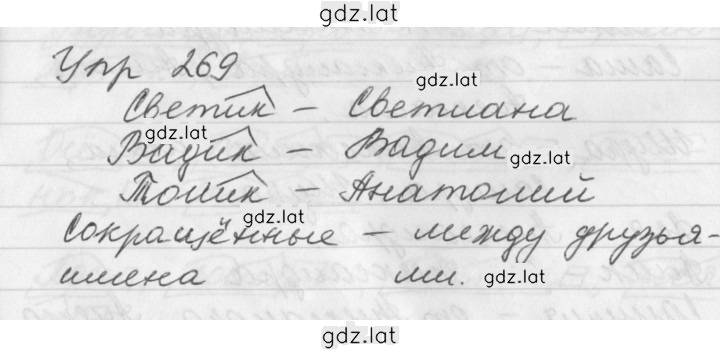 gdz.lat
Упр 269
gdz.lat
Светик – Светлана
gdz.lat
Вадик – Вадим
gdz.lat
Толик – Анатолий
gdz.lat
Сокращённые – между друзья-
имена ми.
gdz.lat
gdz.lat